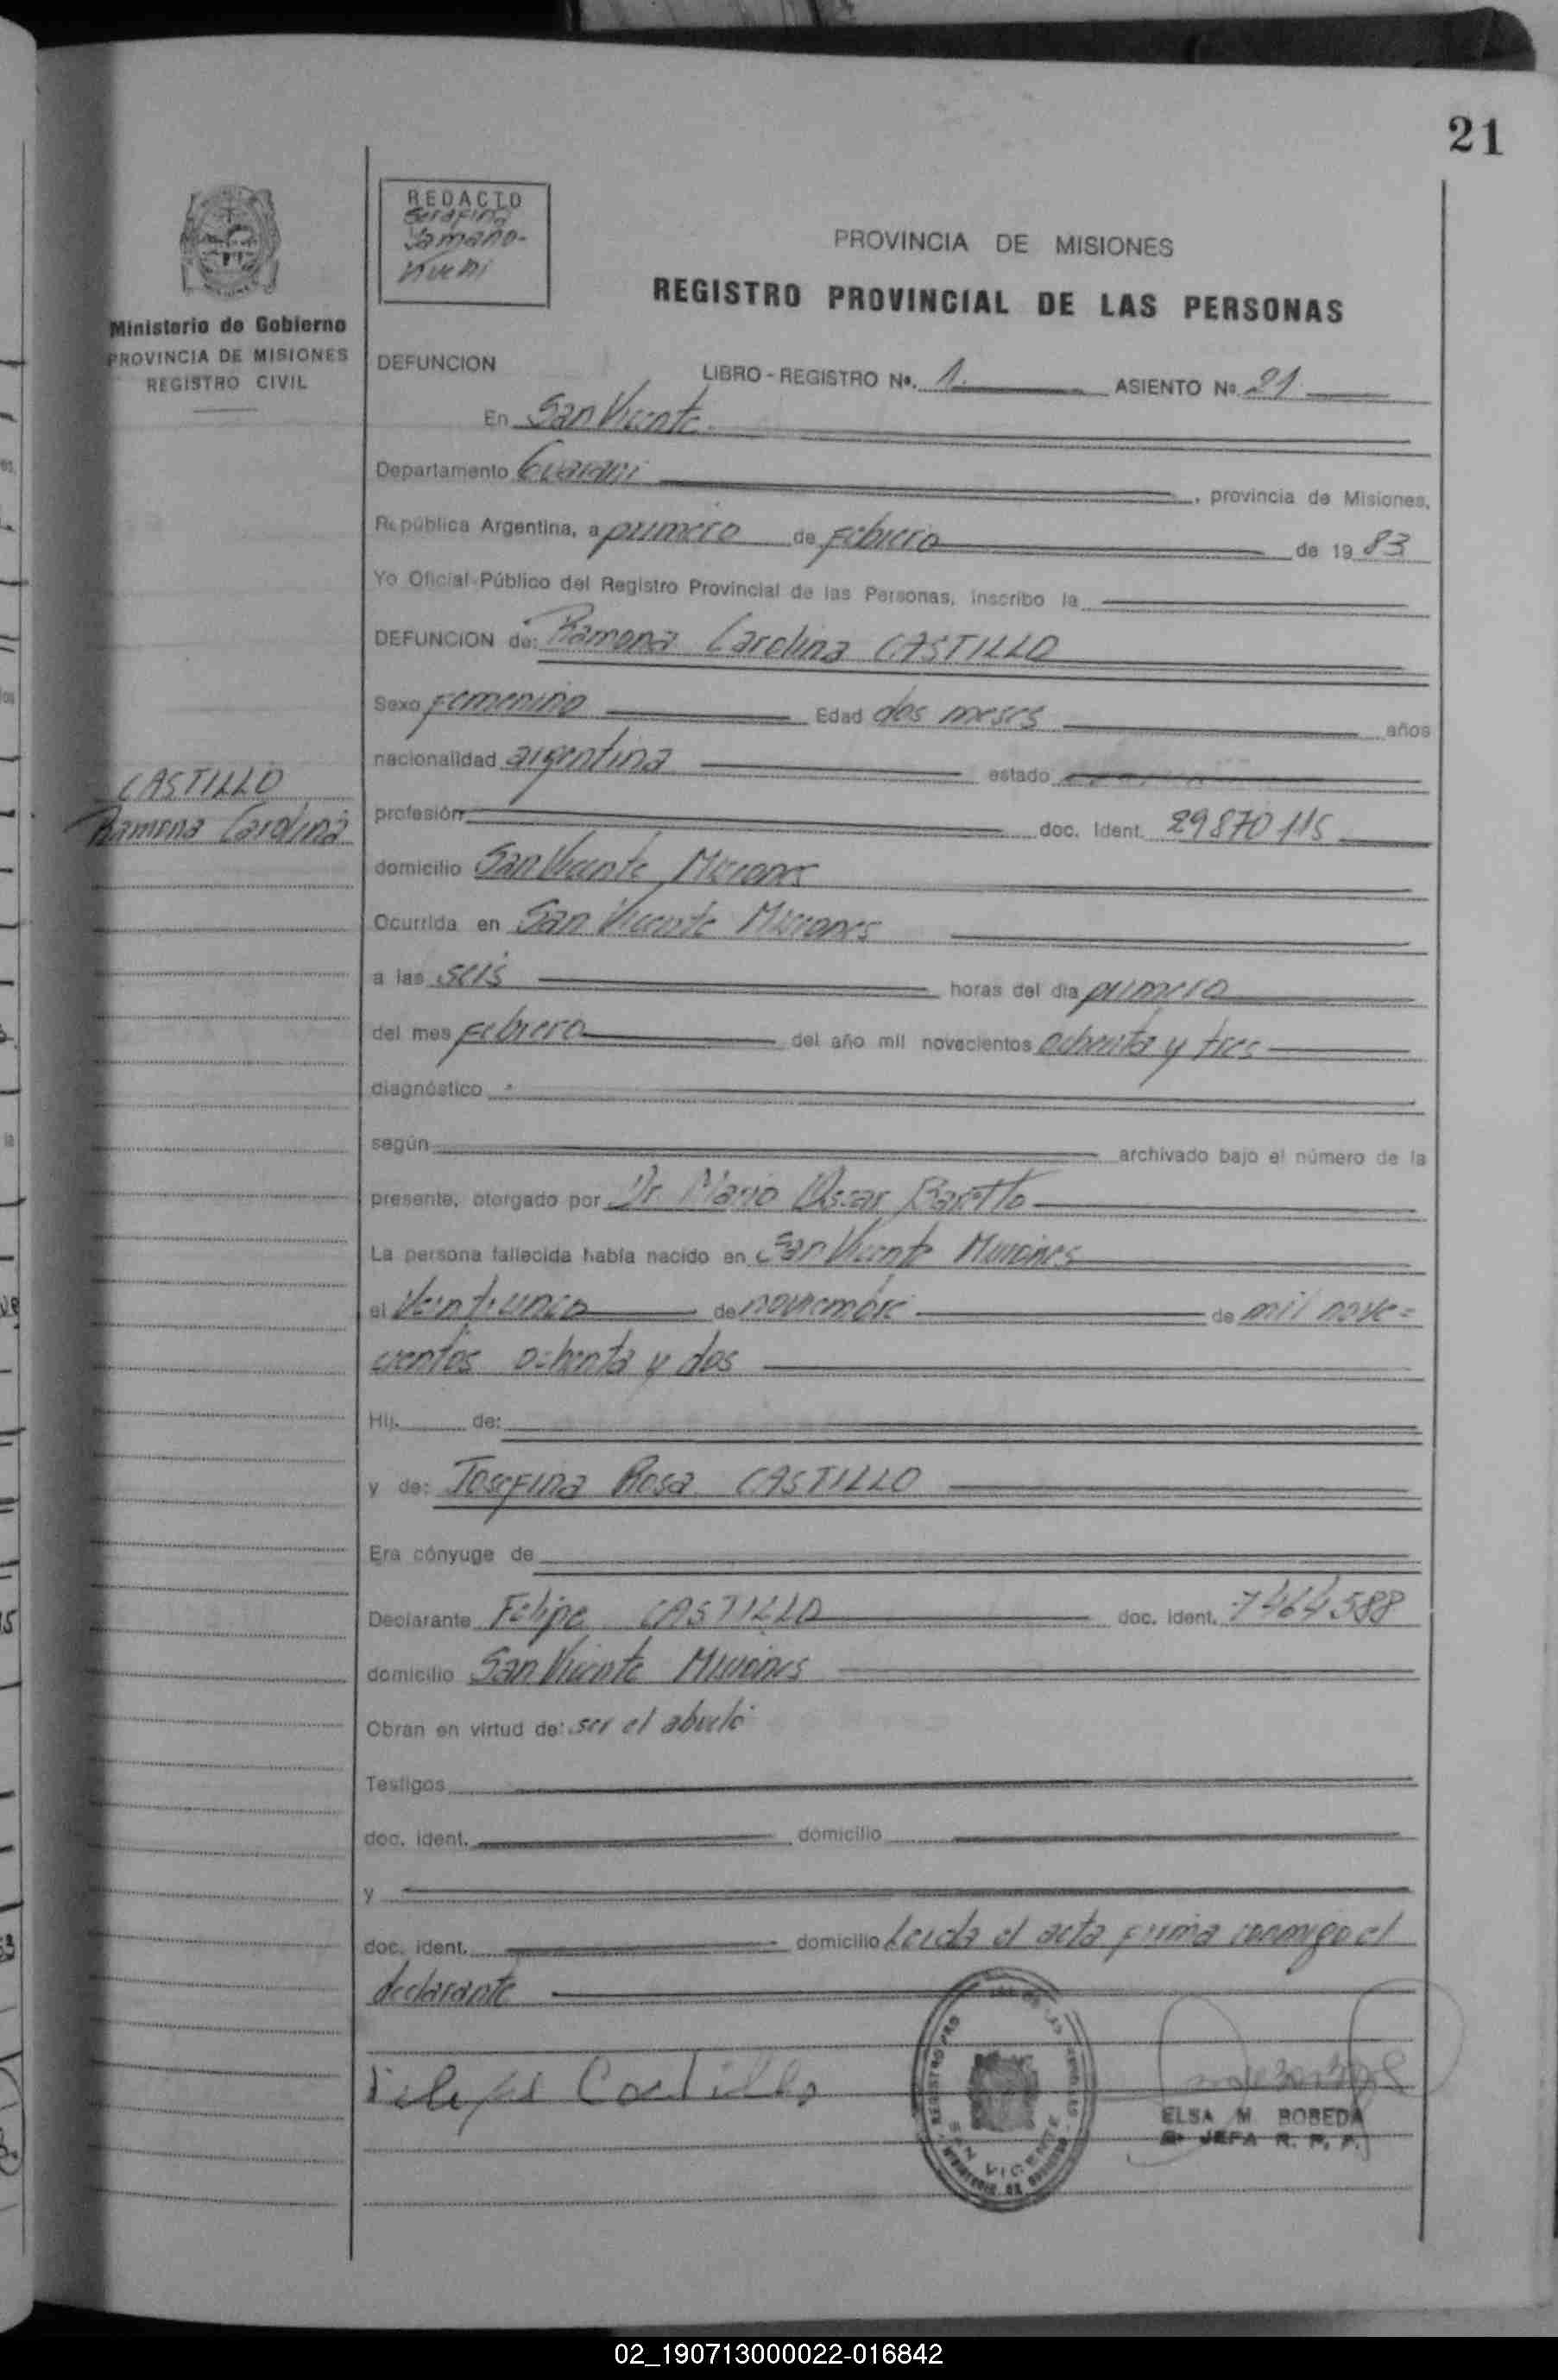 21
REDACTO
Serafina
Yamano-
Ministerio de Gobierno
PROVINCIA DE MISIONES
REGISTRO CIVIL
PROVINCIA DE MISIONES
REGISTRO PROVINCIAL DE LAS PERSONAS
DEFUNCION LIBRO - REGISTRO Nº. 1. ASIENTO Nº 21
En San Vicente
Departamento Guarani , provincia de Misiones,
República Argentina, a primero de Febrero de 19 83
Yo Oficial Público del Registro Provincial de las Personas, inscribo la
DEFUNCION de: Ramona Carolina CASTILLO
Sexo Femenino Edad dos meses años
nacionalidad argentina estado
CASTILLO
Ramona Carolina
profesión doc. Ident. 29870115
domicilio San Vicente Misiones
Ocurrida en San Vicente Misiones
a las seis horas del día primero
del mes Febrero del año mil novecientos ochenta y tres
diagnóstico
según archivado bajo el número de la
presente, otorgado por Dr. Mario Oscar
La persona fallecida había nacido en San Vicente Misiones
el Veintiunco de noviembre de mil nove=
cientos ochenta y dos
Hij. de:
y de: Josefina Rosa CASTILLO
Era cónyuge de
Declarante Felipe CASTILLO doc. ident. 7464588
domicilio San Vicente Misiones
Obran en virtud de: ser el abuelo
Testigos
doc. ident. domicilio
y
doc. ident. domicilio Leida el acta firma conmigo el
declarante
Felipe Castillo
SAN VICENTE
ELSA M. BOBEDA
JEFA R. P. P.
02_190713000022-016842